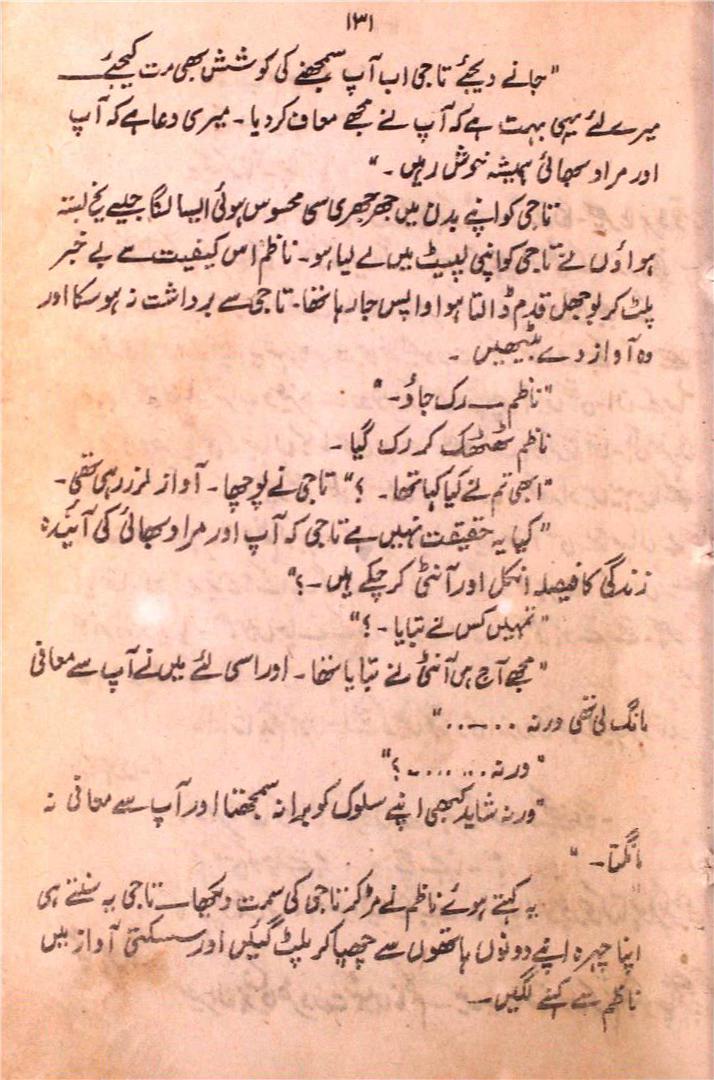 ۱۳۱
"جانے دیجئے تاجی اب آپ سمجھنے کی کوشش بھی مت کیجئے ــــ
میرے لئے یہی بہت ہے کہ آپ نے مجھے معاف کر دیا ۔ میری دعا ہے کہ آپ
اور مراد بھائی ہمیشہ خوش رہیں ۔"
تاجی کو اپنے بدن میں جھرجھری سی محسوس ہوئی ایسا لگا جیسے یخ بستہ
ہواؤں نے تاجی کو اپنی لپیٹ میں لے لیا ہو ۔ ناظم اس کیفیت سے بے خبر
پلٹ کر بوجھل قدم ڈالتا ہوا واپس جا رہا تھا ۔ تاجی سے برداشت نہ ہو سکا اور
وہ آواز دے بیٹھیں ۔
"ناظم ــ رک جاؤ ۔"
ناظم ٹھٹھک کر رک گیا ۔
"ابھی تم نے کیا کہا تھا ۔ ؟" تاجی نے پوچھا ۔ آواز لرز رہی تھی ۔
"کیا یہ حقیقت نہیں ہے تاجی کہ آپ اور مراد بھائی کی آئندہ
زندگی کا فیصلہ انکل اور آنٹی کر چکے ہیں ۔ ؟"
"تمہیں کس نے بتایا ۔ ؟"
"مجھے آج ہی آنٹی نے بتایا تھا ۔ اور اسی لئے میں نے آپ سے معافی
مانگ لی تھی ورنہ ......"
"ورنہ ...... ؟"
"ورنہ شاید کبھی اپنے سلوک کو برا نہ سمجھتا اور آپ سے معافی نہ
مانگتا ۔"
یہ کہتے ہوئے ناظم نے مڑ کر تاجی کی سمت دیکھا ــ تاجی یہ سنتے ہی
اپنا چہرہ اپنے دونوں ہاتھوں سے چھپا کر پلٹ گئیں اور سسکتی آواز میں
ناظم سے کہنے لگیں ــ